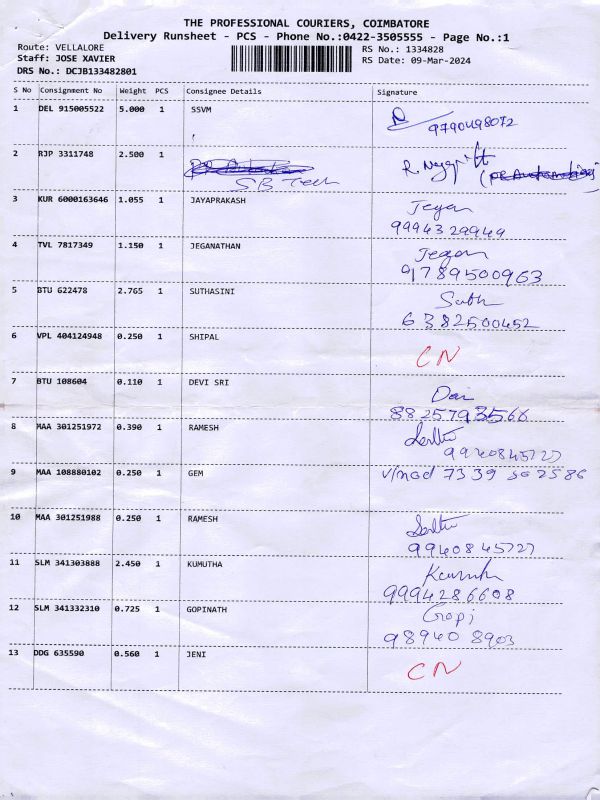 THE PROFESSIONAL COURIERS, COIMBATORE
Delivery Runsheet - PCS - Phone No.:0422-3505555 - Page No.:1
Route: VELLALORE RS No.: 1334828
Staff: JOSE XAVIER RS Date: 09-Mar-2024
DRS No.: DCJB133482801
S No Consignment No Weight PCS Consignee Details Signature
1 DEL 915005522 5.000 1 SSVM
9790498072
2 RJP 3311748 2.500 1
SB Tech
3 KUR 6000163646 1.055 1 JAYAPRAKASH Jegan
9994329949
4 TVL 7817349 1.150 1 JEGANATHAN Jegan
91789500963
5 BTU 622478 2.765 1 SUTHASINI Suth
6382500452
6 VPL 404124948 0.250 1 SHIPAL CN
7 BTU 108604 0.110 1 DEVI SRI
8825793566
8 MAA 301251972 0.390 1 RAMESH
9940845727
9 MAA 108880102 0.250 1 GEM 7339 502586
10 MAA 301251988 0.250 1 RAMESH
9940845727
11 SLM 341303888 2.450 1 KUMUTHA
9994286608
12 SLM 341332310 0.725 1 GOPINATH Gopi
98940 8903
13 DDG 635590 0.560 1 JENI CN